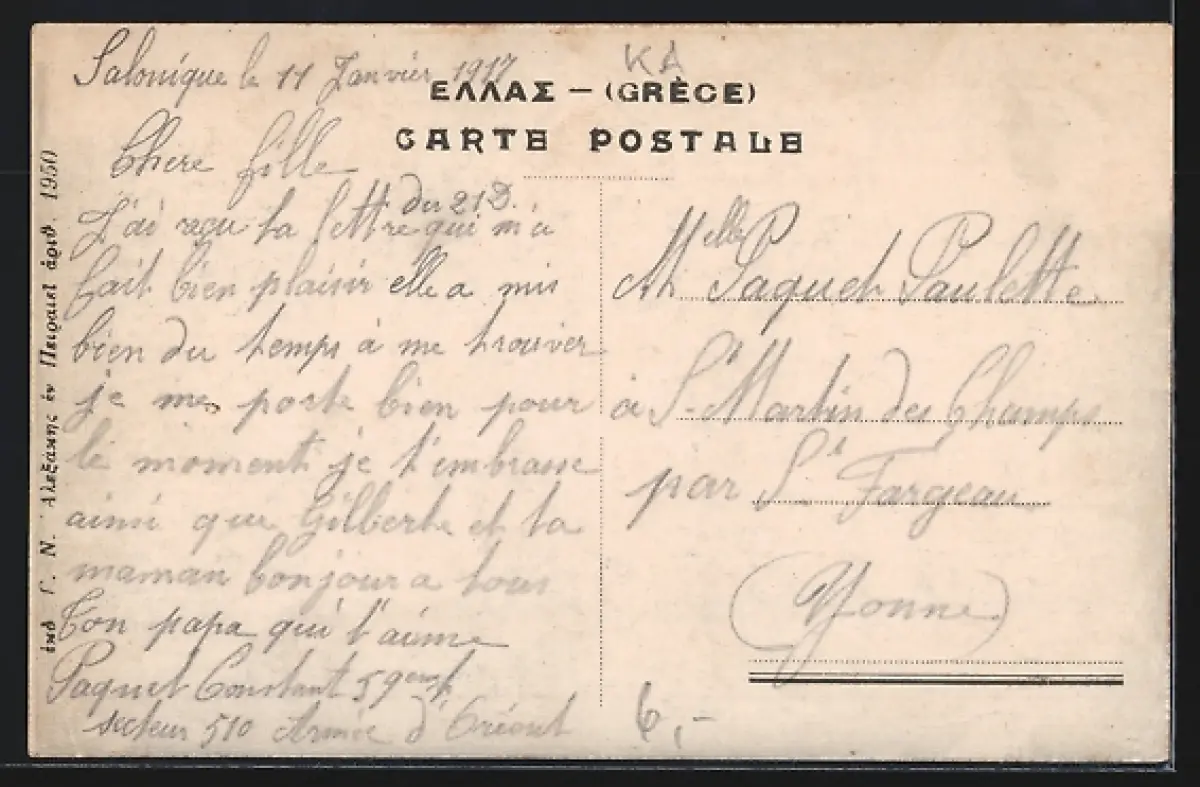 Salonique le 11 Janvier 1917
KA
ΕΛΛΑΣ — (GRÈCE)
CARTE POSTALE
Chere fille
du 21 D.
J'ai reçu ta lettre qui m'a
fait bien plaisir elle a mis
bien du temps a me trouver
je me porte bien pour
le moment je t'embrasse
ainsi que Gilberte et ta
maman bonjour a tous
Ton papa qui t'aime
Paquet Constant 59
secteur 510 Armée d'Orient
Melle Paquet Paulette
à St Martin des Champs
par St Fargeau
(Yonne)
6,-
ἐκδ Γ. Ν. Ἀλεξάκης ἐν Πειραιεῖ ἀριθ. 1950